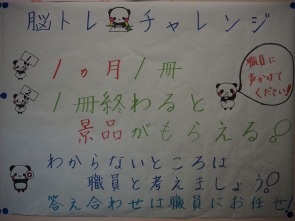 脳トレチャレンジ
1ヵ月1冊
職員に
声かけて
ください!
1冊終わると
景品がもらえる。
わからないところは
職員と考えましょう。
答え合わせは職員にお任せ!